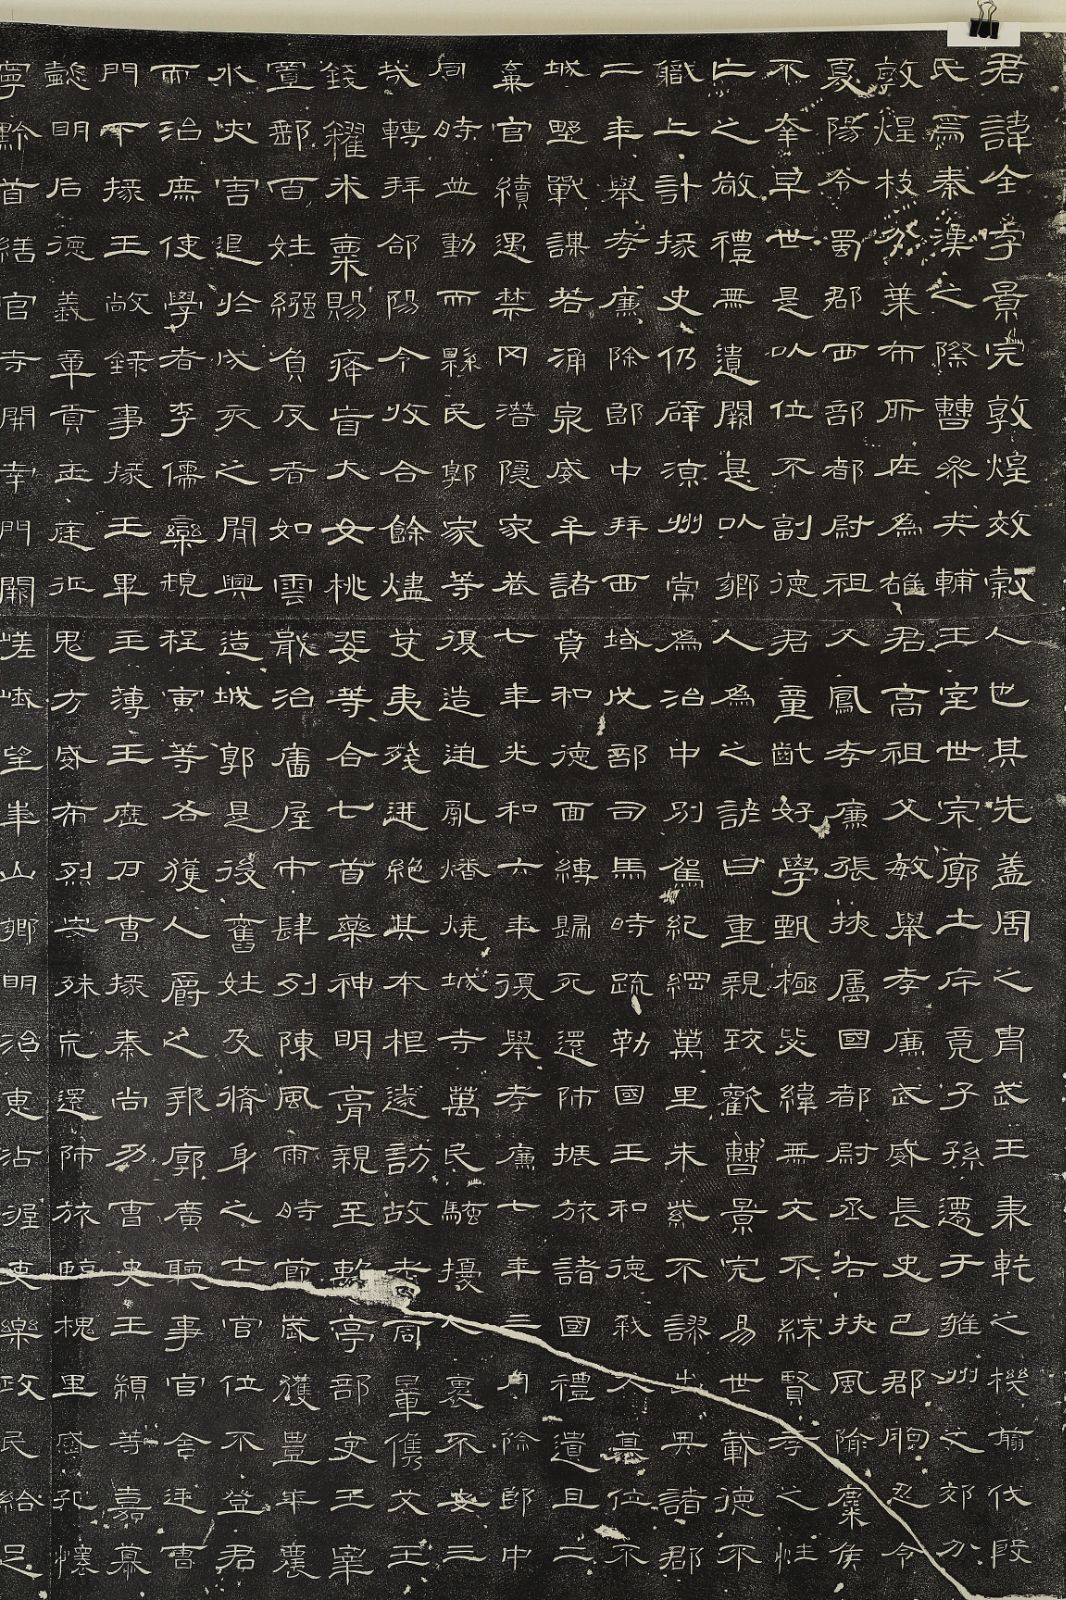 君諱全字景完敦煌效穀人也其先蓋周之胄武王秉乾之機翦伐殷
氏焉秦漢之際曹參夾輔王室世宗廓土斥竟子孫遷于雍州之郊分
敦煌枝分葉布所在為雄君高祖父敏舉孝廉武威長史巴郡朐忍令
夏陽令蜀郡西部都尉祖父鳳孝廉張掖屬國都尉丞右扶風隃麋侯
不幸早世是以位不副德君童齔好學甄極毖緯無文不綜賢孝之性
亡之敬禮無遺闕是以鄉人為之諺曰重親致歡曹景完易世載德不
職上計掾史仍辟涼州常為治中別駕紀綱萬里朱紫不謬出典諸郡
二年舉孝廉除郎中拜西域戊部司馬時疏勒國王和德弒父篡位不
城野戰謀若涌泉威牟諸賁和德面縛歸死還師振旅諸國禮遺且二
棄官續遇禁罔潛隱家巷七年光和六年復舉孝廉七年三月除郎中
同時並動而縣民郭家等復造逆亂燔燒城寺萬民騷擾人裹不安三
哉轉拜郃陽令收合餘燼芟夷殘迸絕其本根遂訪故老商量儁艾王
錢糴米粟賜癃盲大女桃婓等合七首藥神明膏親至離亭部吏王宰
置郵百姓繈負反者如雲戢治廧屋市肆列陳風雨時節歲獲豐年農
水災害退於戌亥之間興造城郭是後舊姓及脩身之士官位不登君
而治庶使學者李儒欒規程寅等各獲人爵之報廓廣聽事官舍廷曹
門下掾王敞錄事掾王畢主簿王歷戶曹掾秦尚功曹史王顓等嘉慕
懿明后德義章貢王庭征鬼方威布烈安殊荒還師旅臨槐里感孔懷
寧黔首繕官寺開南門闕嵯峨望華山鄉明治惠沾渥吏樂政民給足